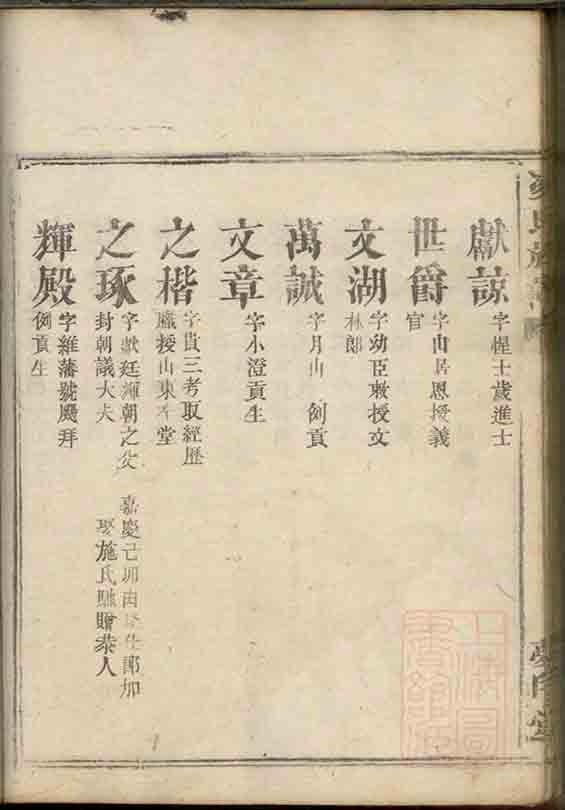 獻諒 字惺士歲進士
世爵 字由居恩授義
官
文湖 字幼臣敕授文
林郎
萬誠 字月山 例貢
文章 字小澄貢生
之楷 字貫三考取經歷
職授山東 堂
之琢 字獻廷輝朝之父 嘉慶己卯由 仕郎加
封朝議大夫 娶施氏貤贈恭人
輝殿 字維藩號颺拜
例貢生
上海圖書館藏